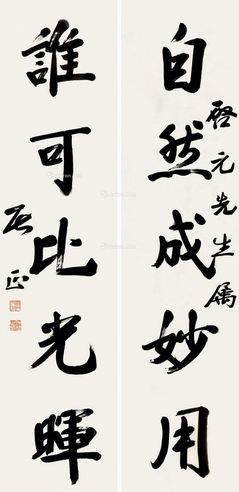 自然成妙用
啓元先生属
誰可比光暉
居正